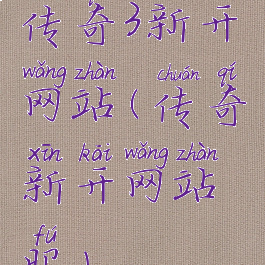 传奇3新开
wǎng zhàn chuán qí
网站(传奇
xīn kāi wǎng zhàn
新开网站
fú